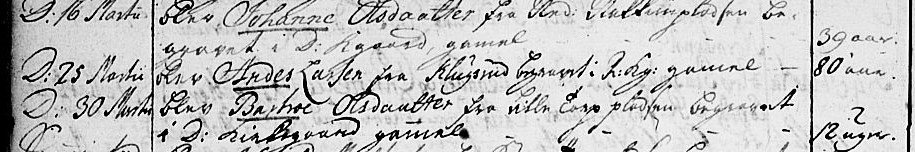 D: 16 Martii blev Johanne Olsdaatter fra be-
gravet i D: Kgaard, gamel 39 aar.
D: 25 Martii blev Andes Larsen fra Klugsrud begravet i D: Kg: gamel – 80 aar.
D: 30 Martii blev Barbroe Olsdaatter fra pladsen begravet
i D: Kirkegaard gammel – – – 12 uger.